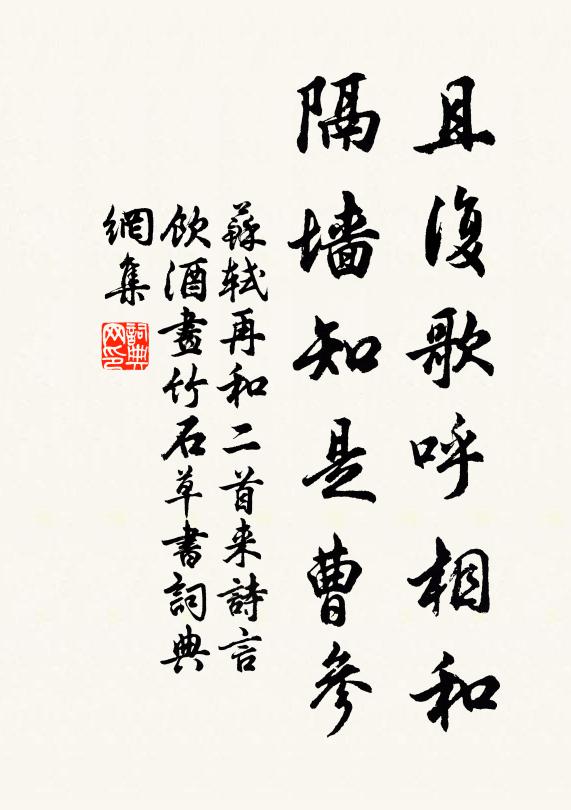 且復歌呼相和
隔墻知是曹參
蘇軾再和二首来詩言
飲酒畫竹石草書詞典
網集
詞典
网印